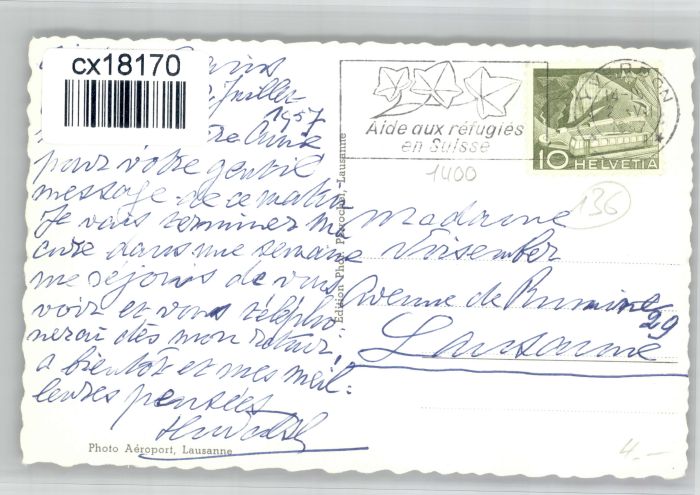 cx18170
Juillet
1957
pour votre gentil
message de ce matin
Je vais terminer ma
cure dans une semaine
me réjouis de vous
voir et vous télépho
nerai dès mon retour,
à bientôt et mes meil=
leures pensées
Photo Aéroport, Lausanne
Edition Photo Perrochet, Lausanne
Aide aux réfugiés
en Suisse
10 HELVETIA
1400
136
Madame
Avenue de Rumine
29
Lausanne
4.-